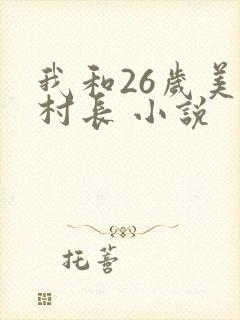 我和26歲美
村長 小説
托蒼